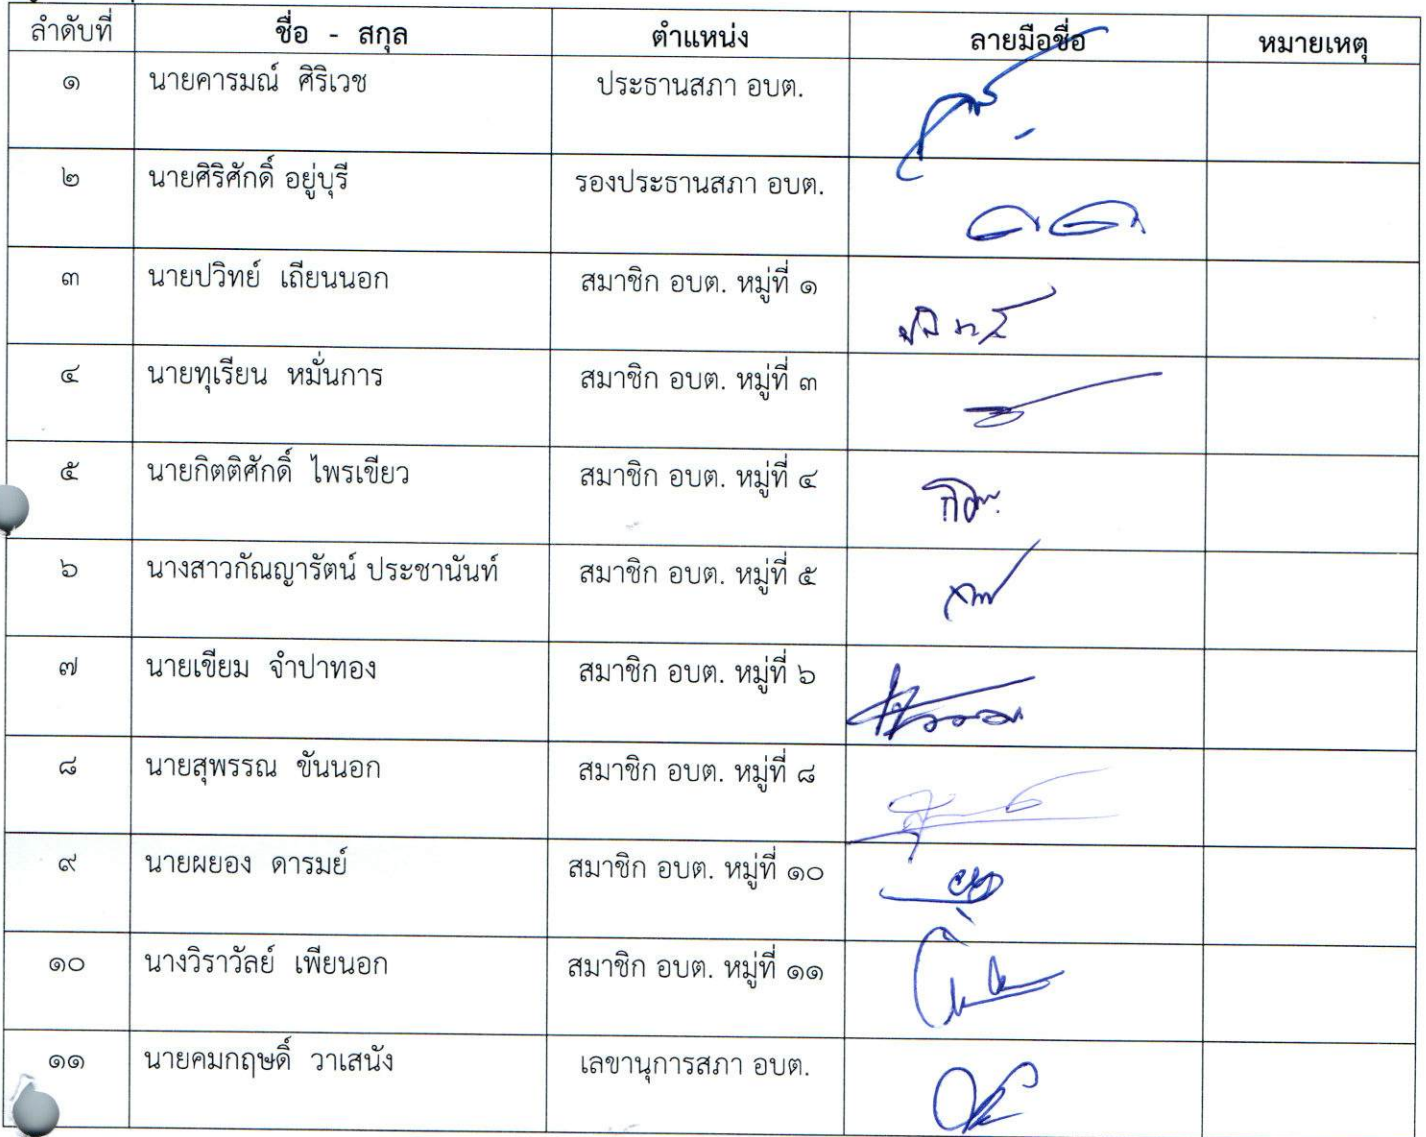 ลำดับที่ ชื่อ - สกุล ตำแหน่ง ลายมือชื่อ หมายเหตุ
๑ นายคารมณ์ ศิริเวช ประธานสภา อบต.
๒ นายศิริศักดิ์ อยู่บุรี รองประธานสภา อบต.
๓ นายปวิทย์ เถียนนอก สมาชิก อบต. หมู่ที่ ๑
๔ นายทุเรียน หมั่นการ สมาชิก อบต. หมู่ที่ ๓
๕ นายกิตติศักดิ์ ไพรเขียว สมาชิก อบต. หมู่ที่ ๔
๖ นางสาวกัณญารัตน์ ประชานันท์ สมาชิก อบต. หมู่ที่ ๕
๗ นายเขียม จำปาทอง สมาชิก อบต. หมู่ที่ ๖
๘ นายสุพรรณ ขันนอก สมาชิก อบต. หมู่ที่ ๘
๙ นายผยอง ดารมย์ สมาชิก อบต. หมู่ที่ ๑๐
๑๐ นางวิราวัลย์ เพียนอก สมาชิก อบต. หมู่ที่ ๑๑
๑๑ นายคมกฤษดิ์ วาเสนัง เลขานุการสภา อบต.